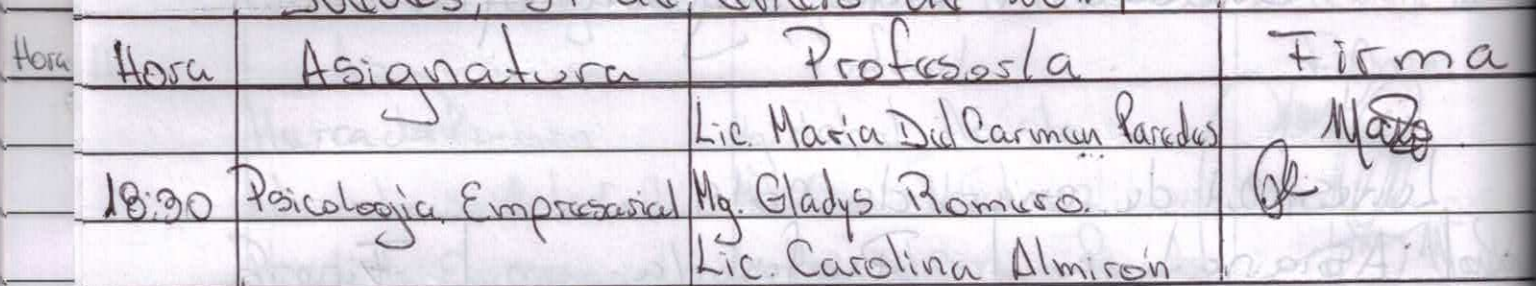 Hora
Hora Asignatura Profesor/a Firma
Lic. María Del Carmen Paredes
18:30 Psicología Empresarial Mg. Gladys Romero.
Lic. Carolina Almirón